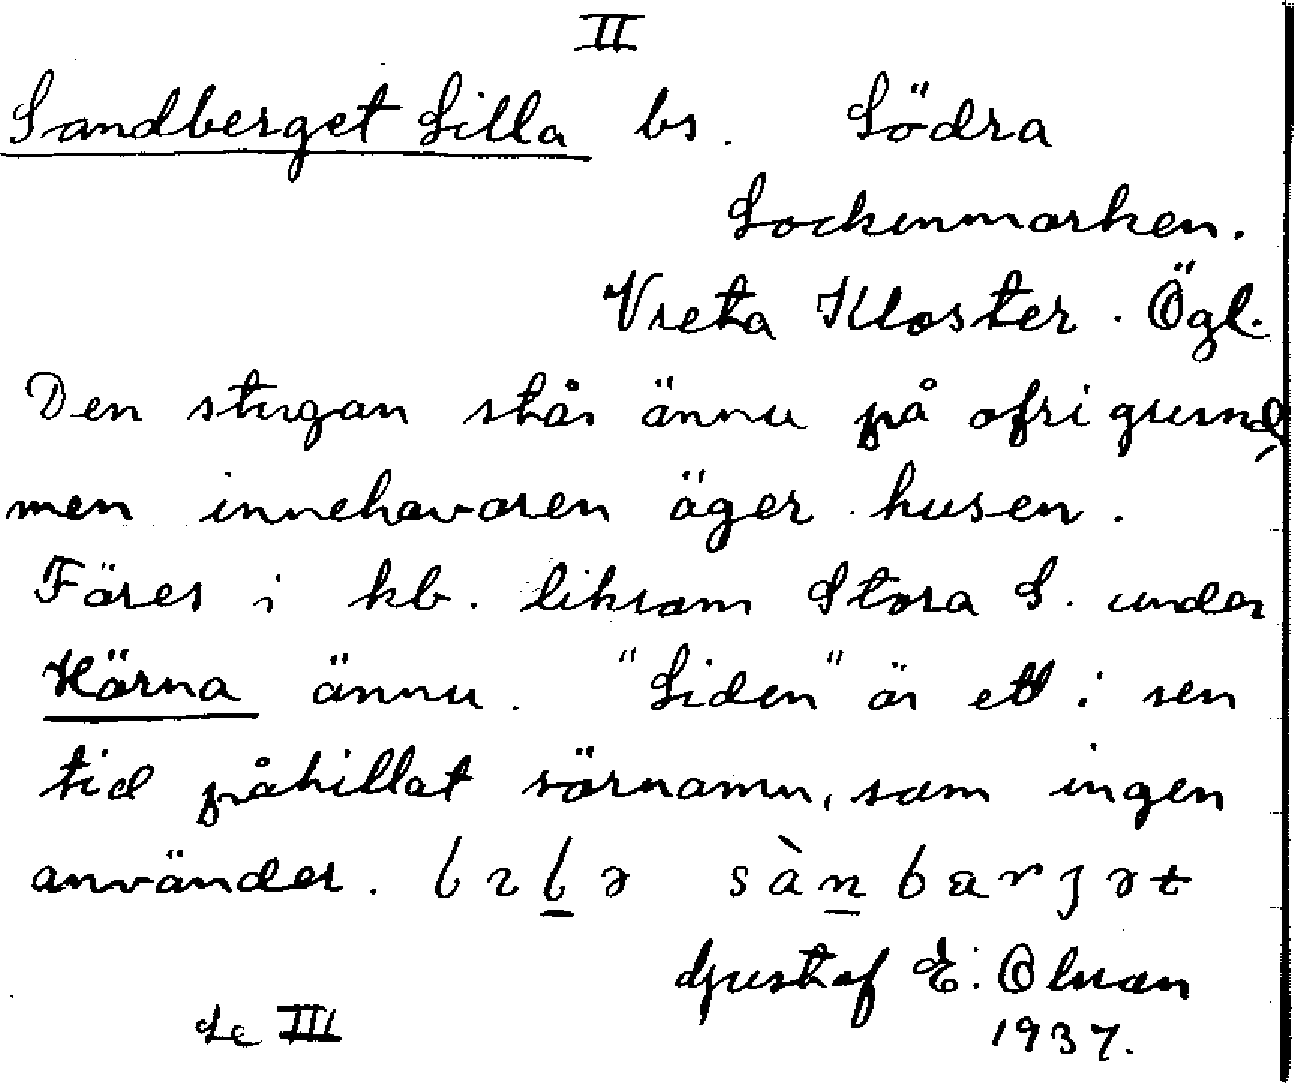 II
Sandberget Lilla bs. Södra
Sockenmarken.
Vreta Kloster. Ögl.
Den stugan står ännu på ofri grund,
men innehavaren äger husen.
Föres i kb. liksom Stora S. under
Kärna ännu. "Liden" är ett i sen
tid påhittat särnamn, som ingen
använder. sàn̲barjət
Gustaf E. Olsson
Se III 1937.